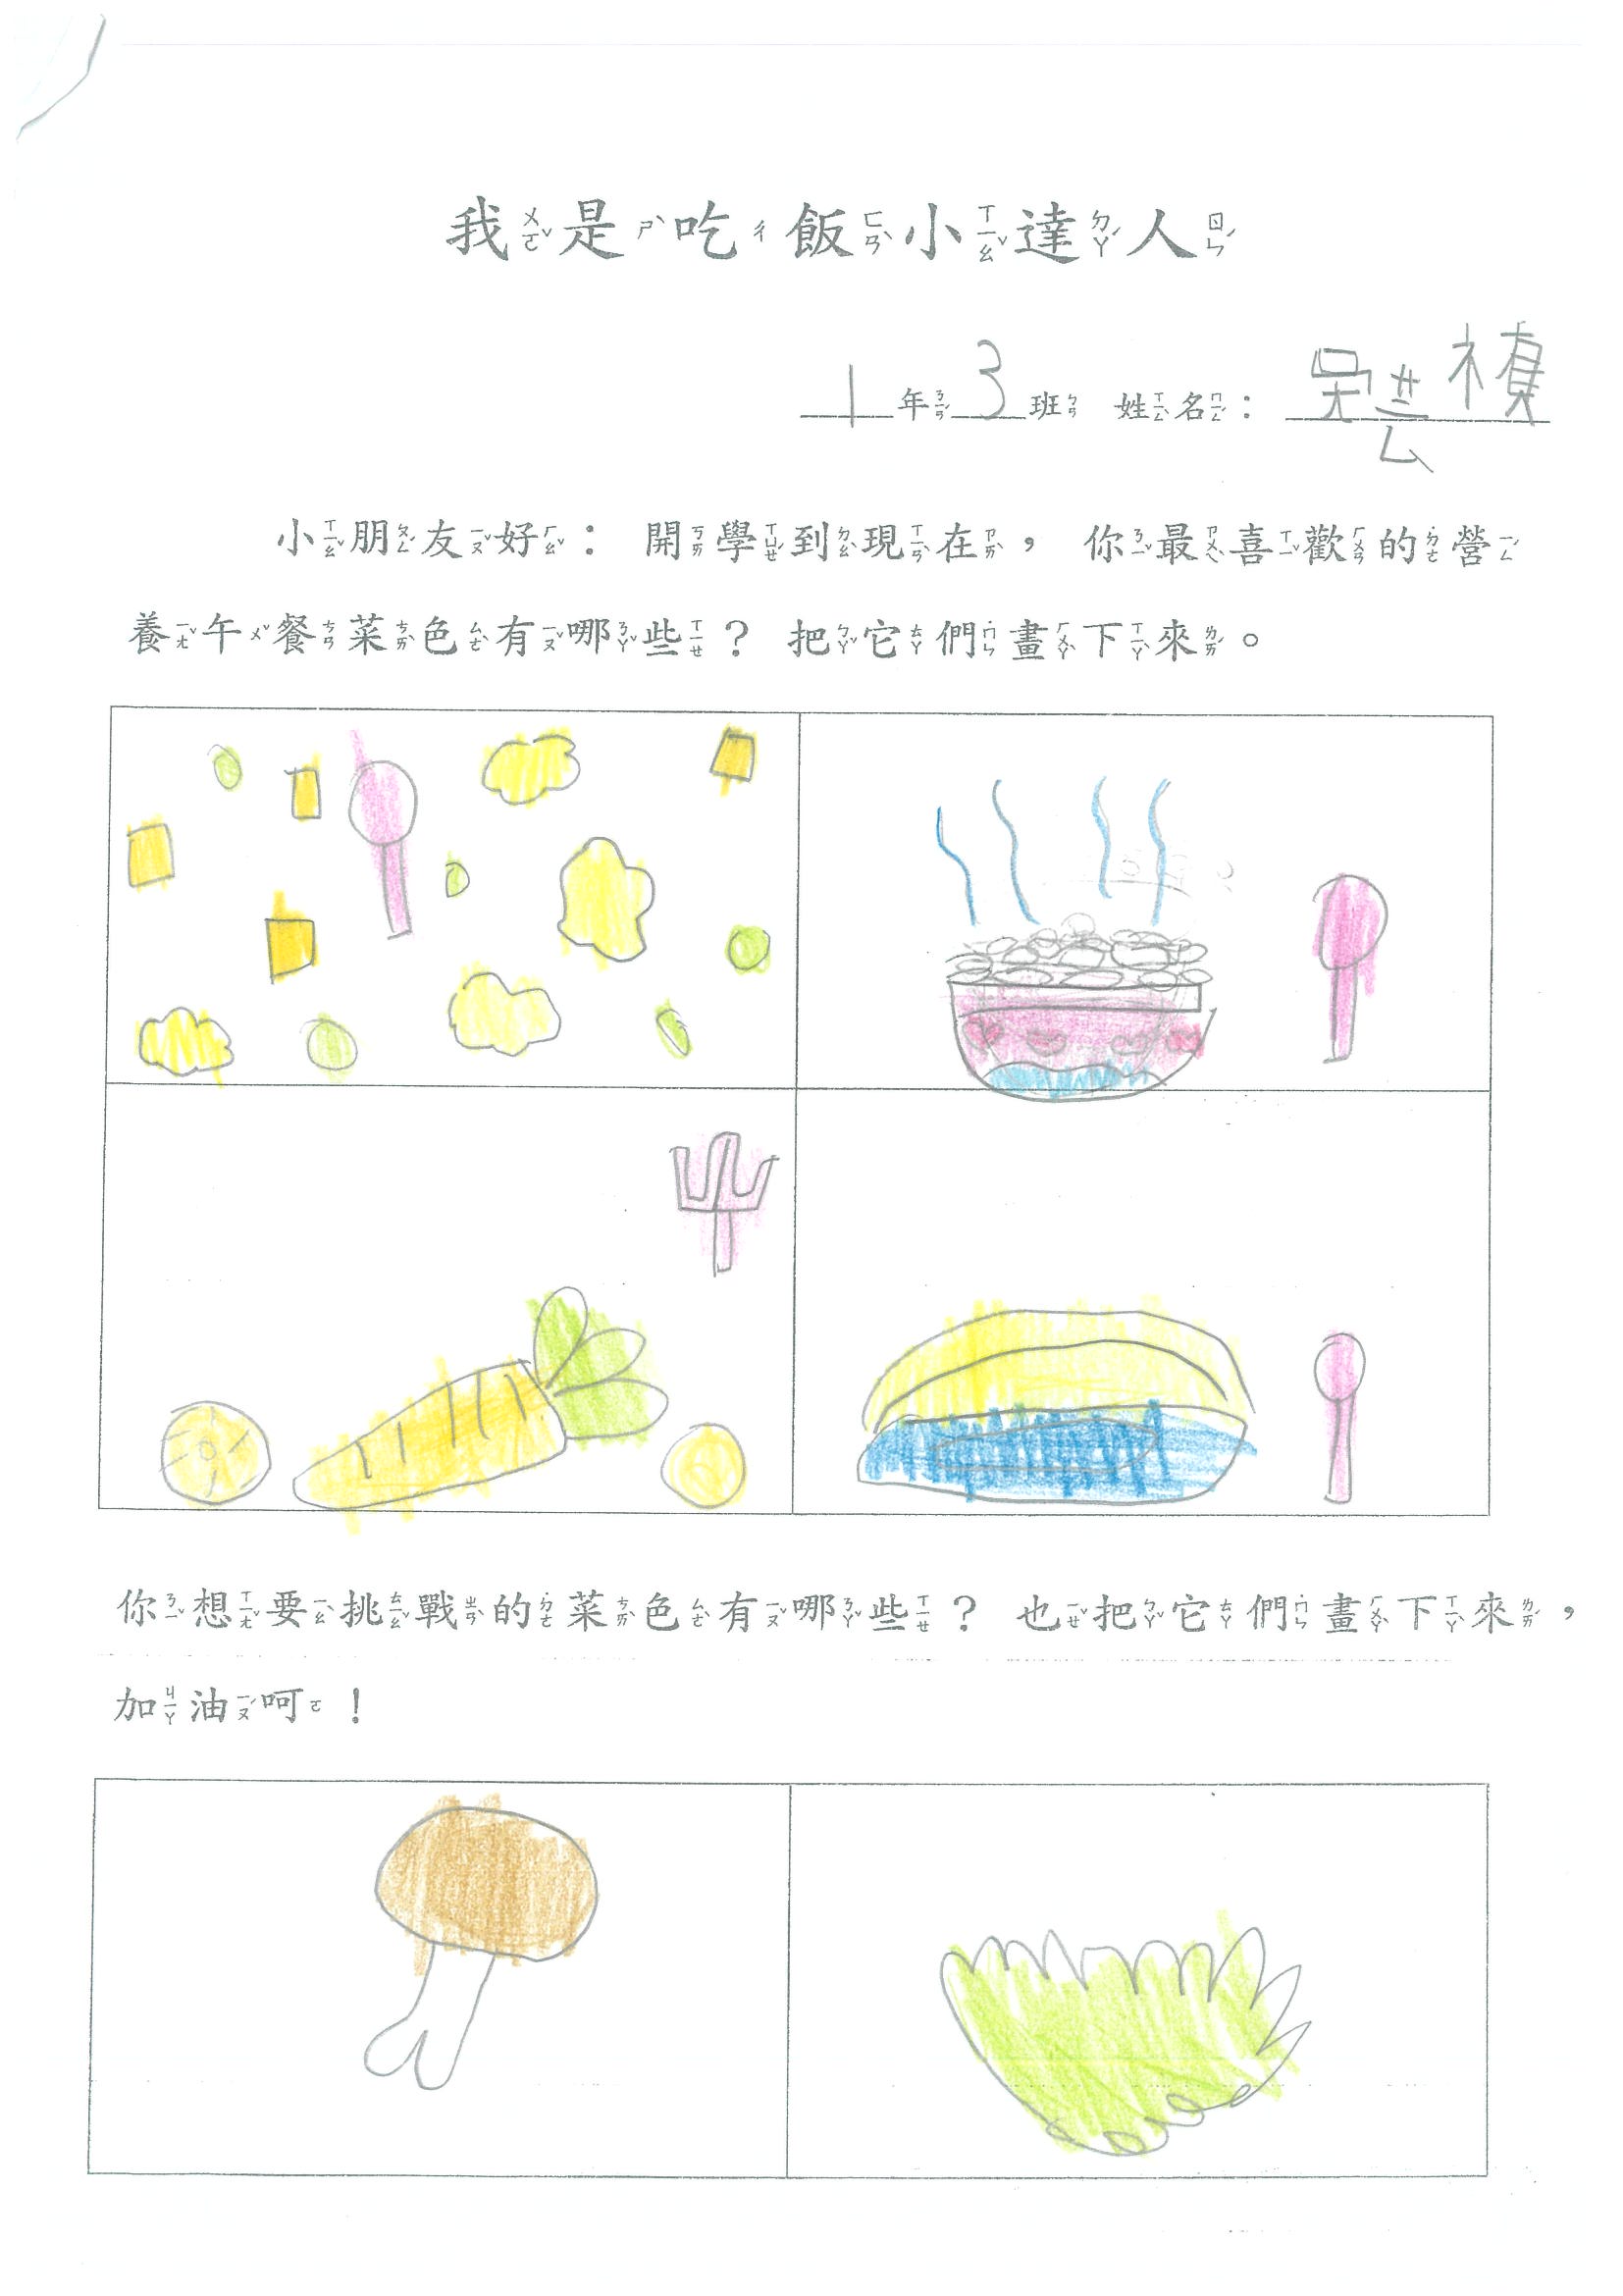 我是吃飯小達人
1年3班 姓名：吳芸禎
小朋友好：開學到現在，你最喜歡的營
養午餐菜色有哪些？把它們畫下來。
你想要挑戰的菜色有哪些？也把它們畫下來，
加油呵！